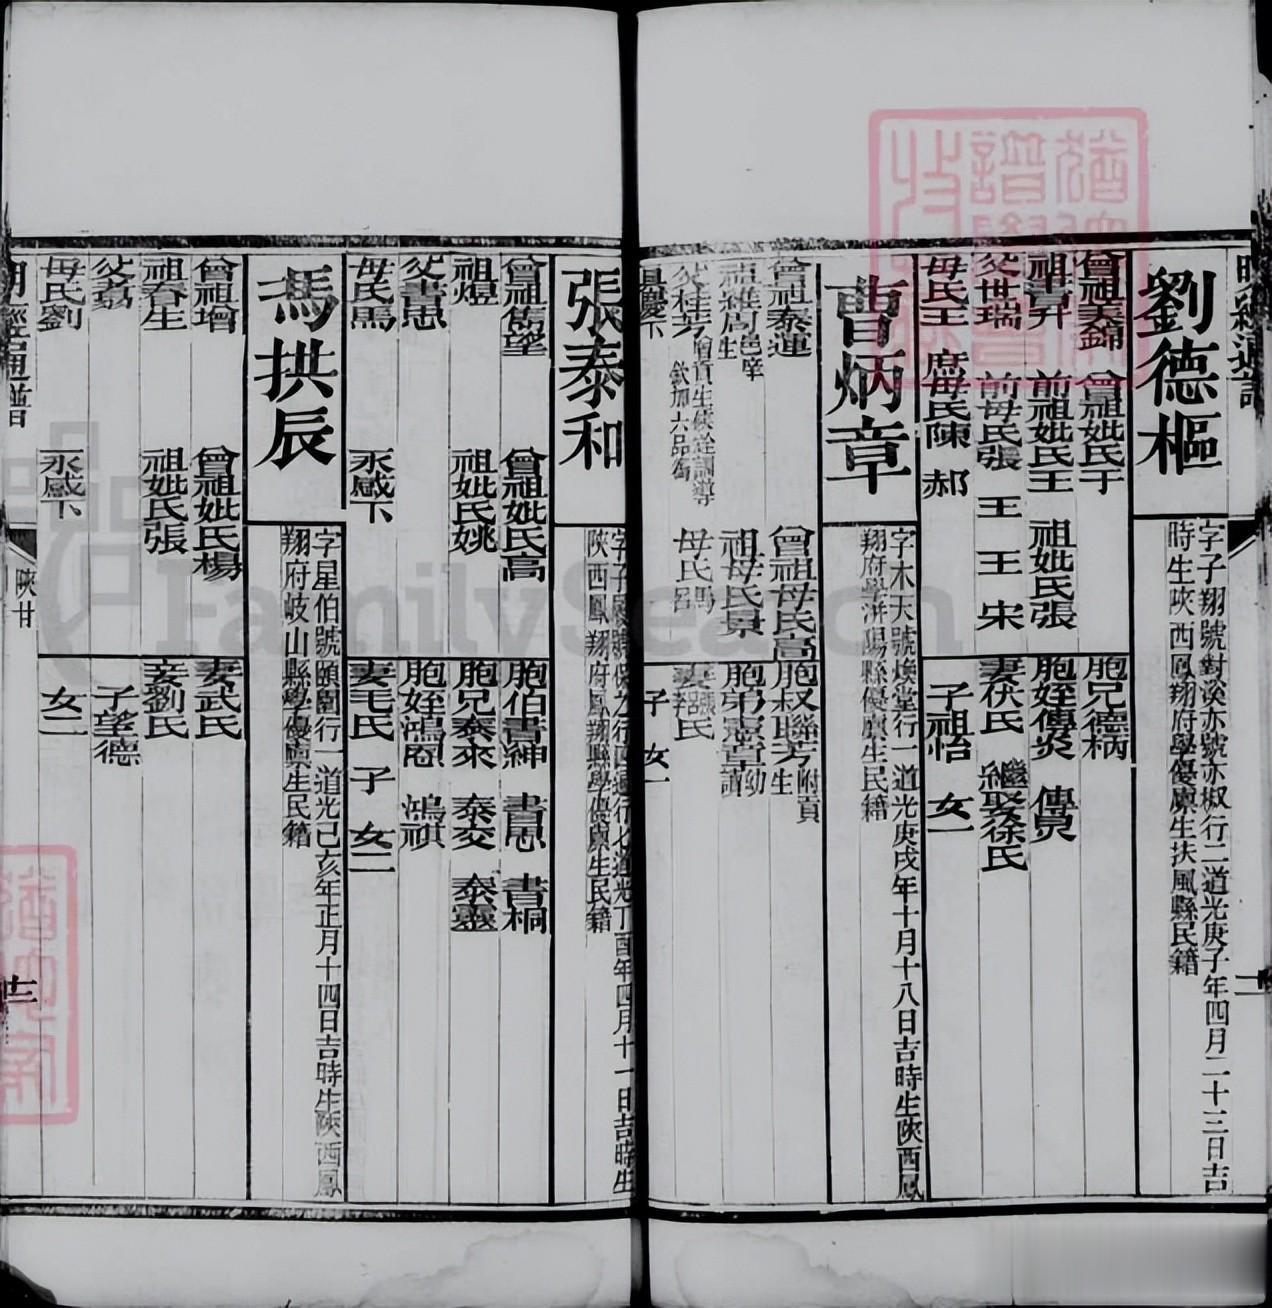 明經通譜
劉德樞
字子翔號對溪亦號亦椒行二道光庚子年四月二十三日吉
時生陝西鳳翔府學優廩生扶風縣民籍
曾祖美錦 曾祖妣氏于
祖貴升 前祖妣氏王 祖妣氏張
父世瑞 前母氏張 王 王 宋
母氏王 庶母氏陳 郝
胞兄德柄
胞姪傳炎 傳昃
妻伏氏 繼娶徐氏
子祖怡 女一
曹炳章
字木天號煥堂行一道光庚戌年十月十八日吉時生陝西鳳
翔府學汧陽縣優廩生民籍
曾祖泰運 曾祖母氏高
祖維周邑庠生 祖母氏景
父桂芳增貢生候詮訓導欽加六品銜 母氏馬呂
具慶下
胞叔聯芳附貢生
胞弟憲章幼讀
妻張氏
子 女一
張泰和
字子 號 行四 行七道光丁酉年四月十一日吉時生
陝西鳳翔府鳳翔縣學優廩生民籍
曾祖雋望 曾祖妣氏高
祖燈 祖妣氏姚
父書思
母氏馬 永感下
胞伯書紳 書思 書桐
胞兄泰來 泰交 泰靈
胞姪鴻恩 鴻祺
妻毛氏 子 女二
馮拱辰
字星伯號頤園行一道光己亥年正月十四日吉時生陝西鳳
翔府岐山縣學優廩生民籍
曾祖增 曾祖妣氏楊
祖春生 祖妣氏張
父荔
母氏劉 永感下
妻武氏
妾劉氏
子望德
女二
明經通譜
陝甘
十二
FamilySearch